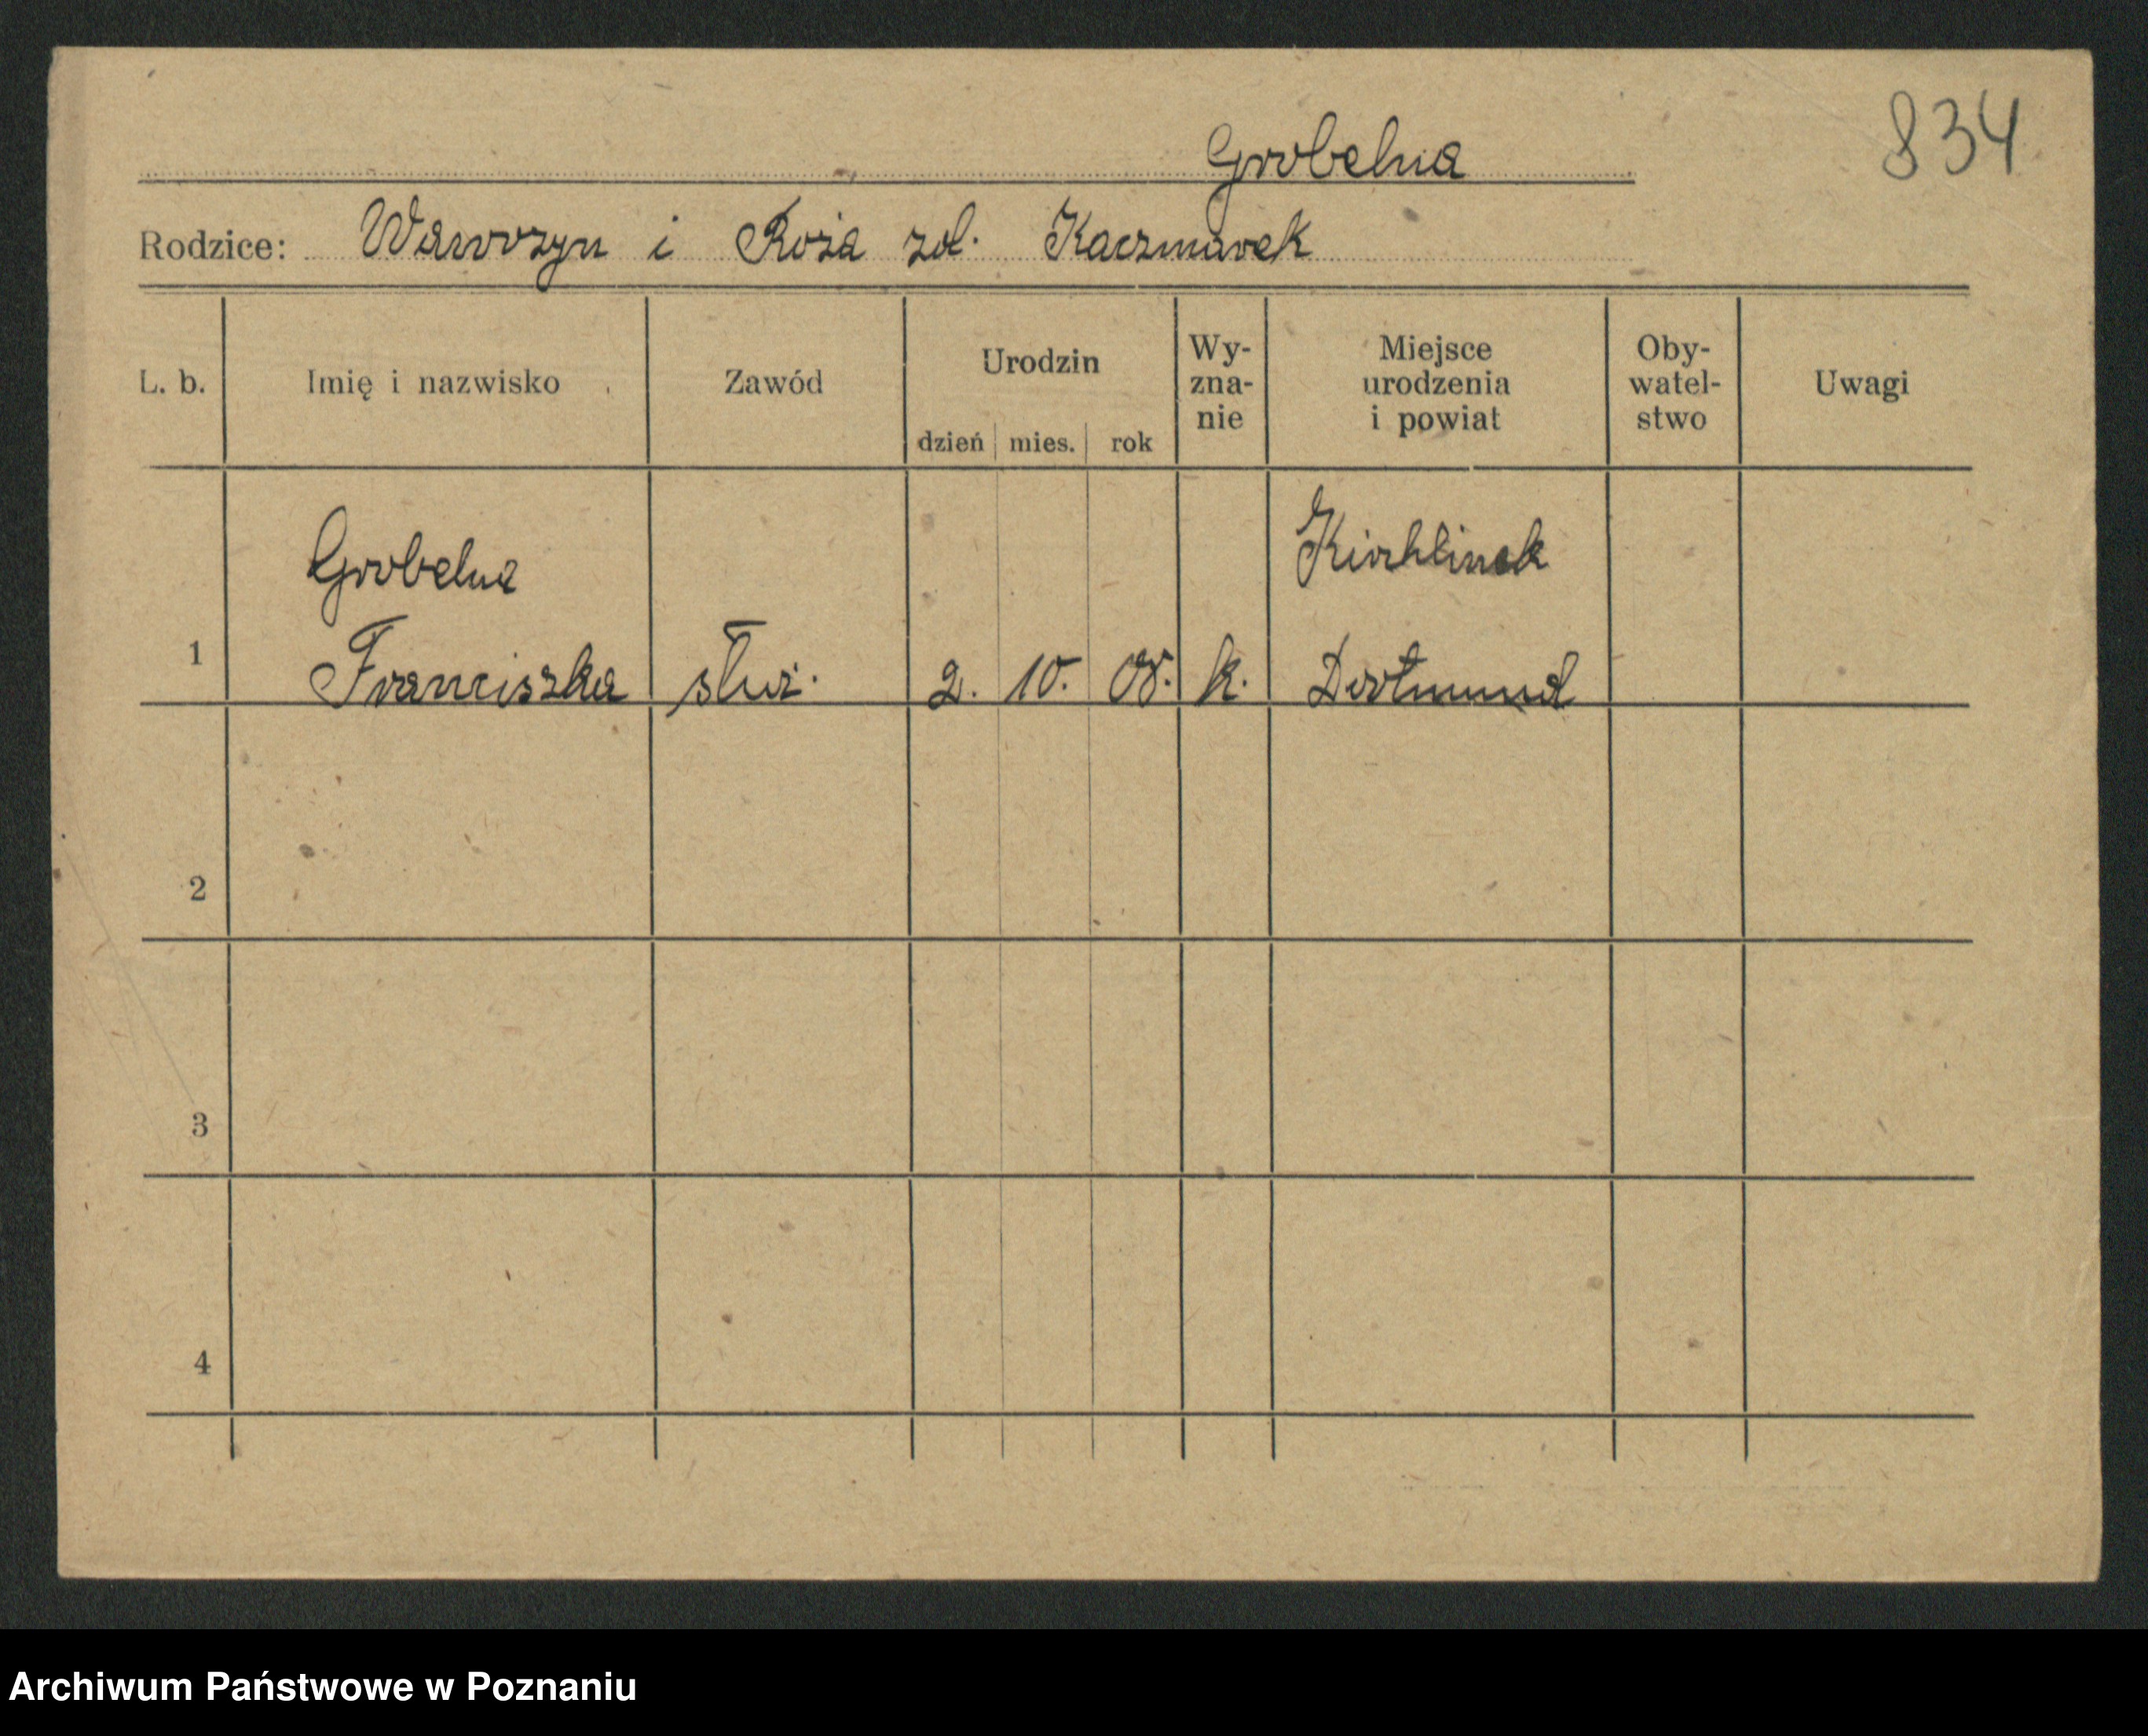 834
Grobelna
Rodzice: Wawrzyn i Róża zd. Kaczmarek
L. b. Imię i nazwisko Zawód Urodzin dzień mies. rok Wy-zna-nie Miejsce urodzenia i powiat Oby-watel-stwo Uwagi
Grobelna Kirchlinde
1 Franciszka służ. 2. 10. 08. k. Dortmund
2
3
4
Archiwum Państwowe w Poznaniu